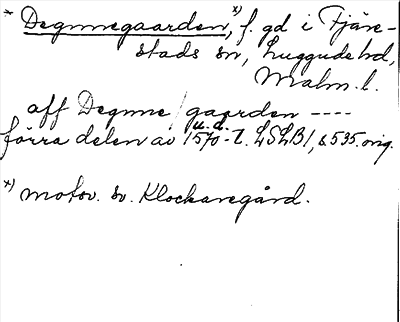 * Degnnegaarden, *) f. gd i Fjäre-
stads sn, Luggude hd,
Malm. l.
aff Degnne / gaarden ----
förra delen av 1570-t. LSLB1, s. 535. orig.
u. d.
*) motsv. sv. Klockaregård.